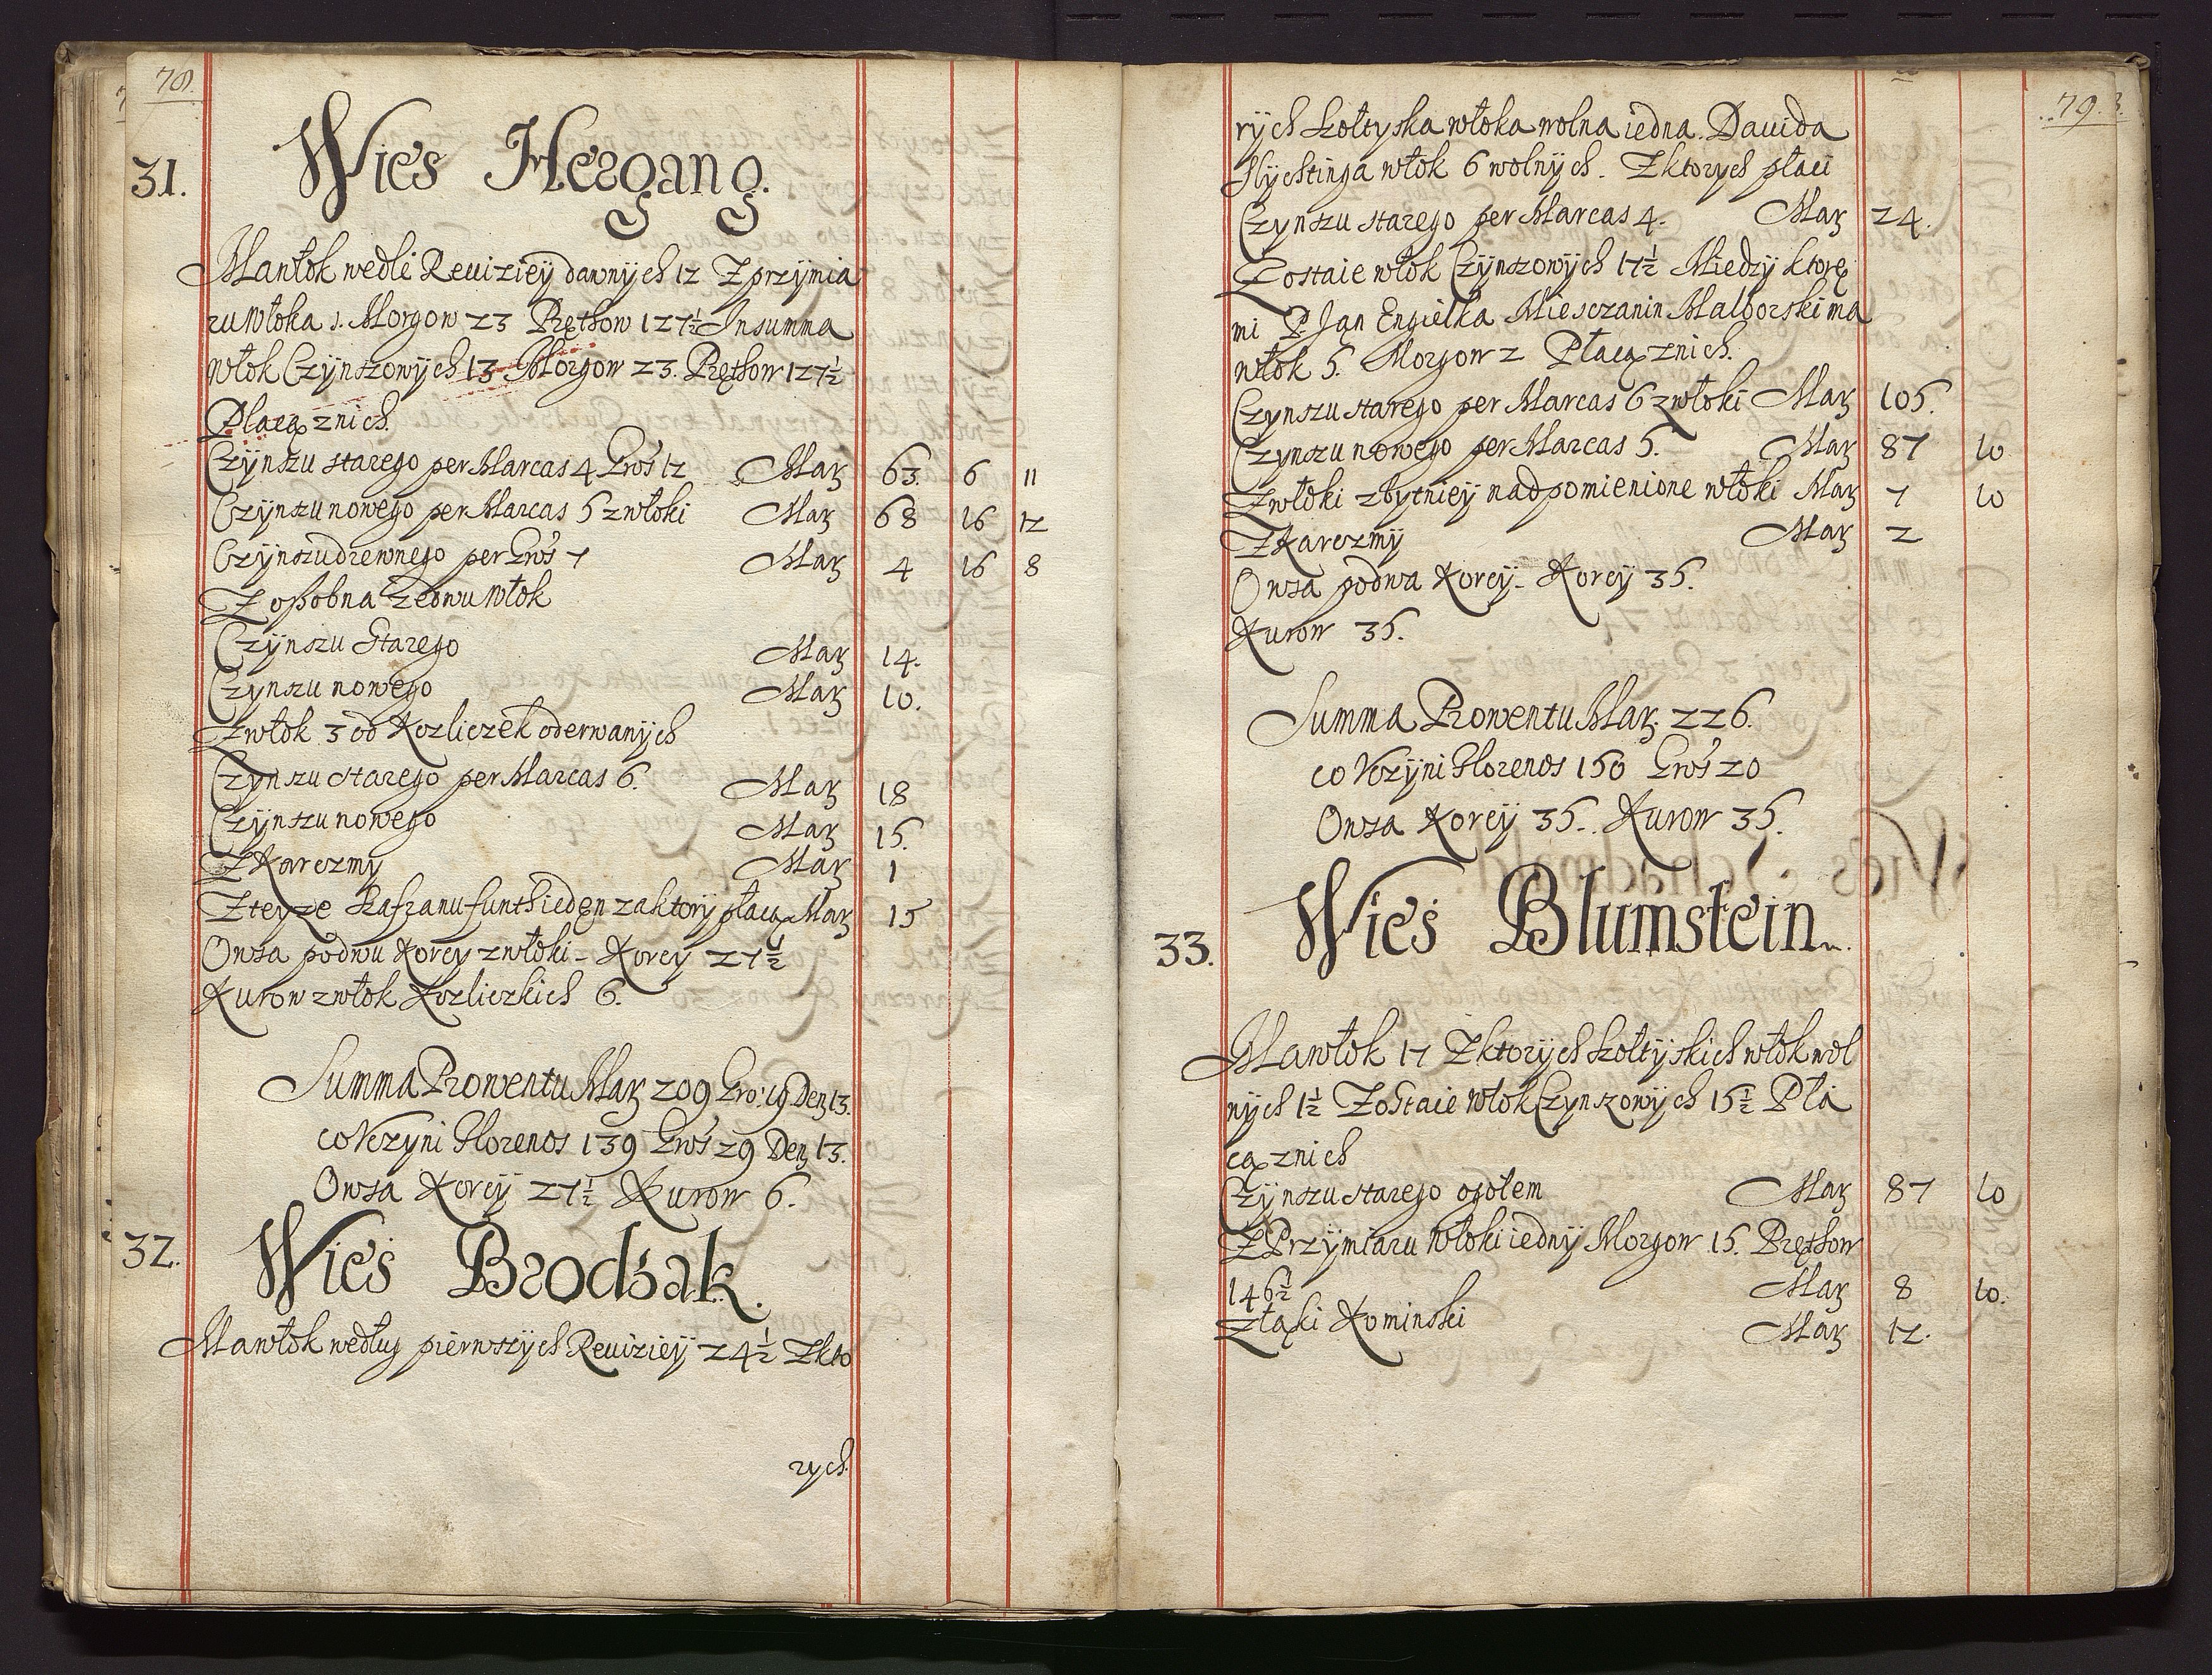 78.
31. Wies Hergang.
Mawłok wedle Reuiziey dawnych 12 Zprzymia
ru Włoka 1. Morgow 23 Pręthow 127½ Insumma
włok Czynszowych 13 Morgow 23. Pręthow 127½
Płacą znich.
Czynszu starego per Marcas 4 Gros 12 Mar 63. 6 11
Czynszu nowego per Marcas 5 zwłoki Mar 68 16 12
Czynszu drzewnego per Gros 7 Mar 4 16 8
Zosobna ze dwu Włok
Czynszu Starego Mar 14.
Czynszu nowego Mar 10.
Zwłok 3 od Kozliczek oderwanych
Czynszu starego per Marcas 6. Mar 18
Czynszu nowego Mar 15.
ZKarczmy Mar 1
Zteyze Szafranu funth ieden za ktory płacą Mar 15
Owsa po dwu Korcy zwłoki - Korcy 27½
Kurow zwłok Kozliczkich 6.
Summa Prowentu Mar 209 Gro: 19 Den 13.
co Vczyni Florenos 139 Gros 29 Den 13.
Owsa Korcy 27½ Kurow 6.
32. Wies Brodsak.
Mawłok według pierwszych Reuiziey 24½ Zkto
rych
79.
rych szołtyska włoka wolna iedna. Dauida
Hychtinga włok 6 wolnych. Zktorych płaci
Czynszu starego per Marcas 4. Mar 24.
Zostaie włok Czynszowych 17½ Miedzy ktore
mi P. Jan Engielka Miesczanin Malborski ma
włok 5. Morgow 2 Płacą znich.
Czynszu starego per Marcas 6 zwłoki Mar 105.
Czynszu nowego per Marcas 5. Mar 87 10
Zwłoki zbytniey nadpomienione włoki Mar 7 10
ZKarczmy Mar 2
Owsa po dwa Korcy - Korcy 35.
Kurow 35.
Summa Prowentu Mar. 226.
co Vczyni Florenos 150 Gros 20
Owsa Korcy 35. Kurow 35.
33. Wies Blumstein.
Mawłok 17 Zktorych szołtyskich włok wol
nych 1½ Zostaie włok Czynszowych 15½ Pła
cą znich
Czynszu starego ogołem Mar 87 10
ZPrzymiaru Włoki iedny Morgow 15. Pręthow
146½ Mar 8 10.
Złąki Kominski Mar 12.